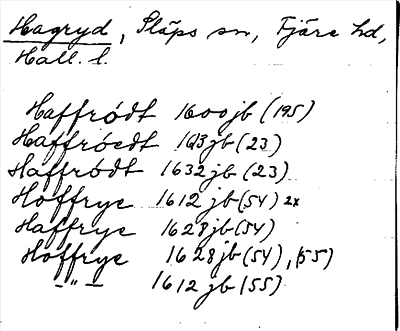 Hagryd, Släps sn, Fjäre hd,
Hall. l.
Haffrödt 1600jb (195)
Haffröedt 1613jb (23)
Haffrödt 1632jb (23)
Hoffrye 1612jb (54) 2x
Haffrye 1628jb (54)
Hoffrye 1628jb (54), (55)
-"- 1612jb (55)